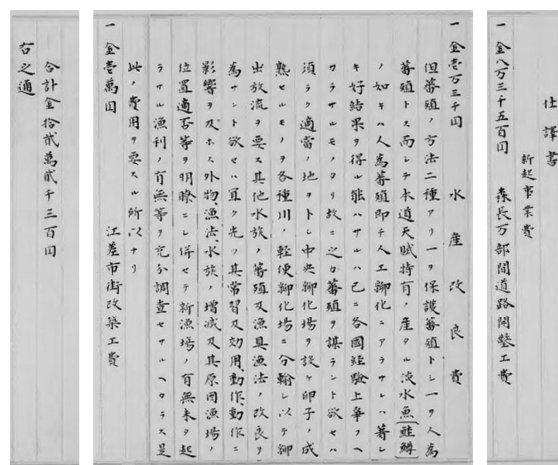 仕譯書
新起事業費
一金八万三千五百円　森長万部間道路開墾工費
一金壱万三千円　水産改良費
但蕃殖ノ方法二種アリ一ヲ保護蕃殖トシ一ヲ人為
蕃殖トス而シテ本道天賦特有ノ産タル淡水魚(鮭鱒)
ノ如キハ人為蕃殖即チ人工孵化ニアラサレハ著シ
キ好結果ヲ得ル能ハサルハ已ニ各國経験上争フヘ
カラサルモノタリ故ニ之カ蕃殖ヲ謀ラント欲セハ
須ラク適當ノ地ヲトシ中央孵化場ヲ設ケ卵子ノ成
熟セルモノヲ各種川ノ軽便孵化場ニ分輸シ以テ孵
出放流ヲ要ス其他水族ノ蕃殖及漁具漁法ノ改良ヲ
為サント欲セハ宜ク先ツ其常習及効用動作、動作ニ
影響ヲ及ホス外物、漁法、水族ノ増減及其原因漁場ノ
位置適否等ヲ明瞭ニシ併セテ新漁場ノ有無未タ起
ラサル漁利ノ有無等ヲ充分調査セサルヘカラス是
此ノ費用ヲ要スル所以ナリ
一金壱萬円　江差市街改築工費
合計金拾貳萬貳千三百円
右之通